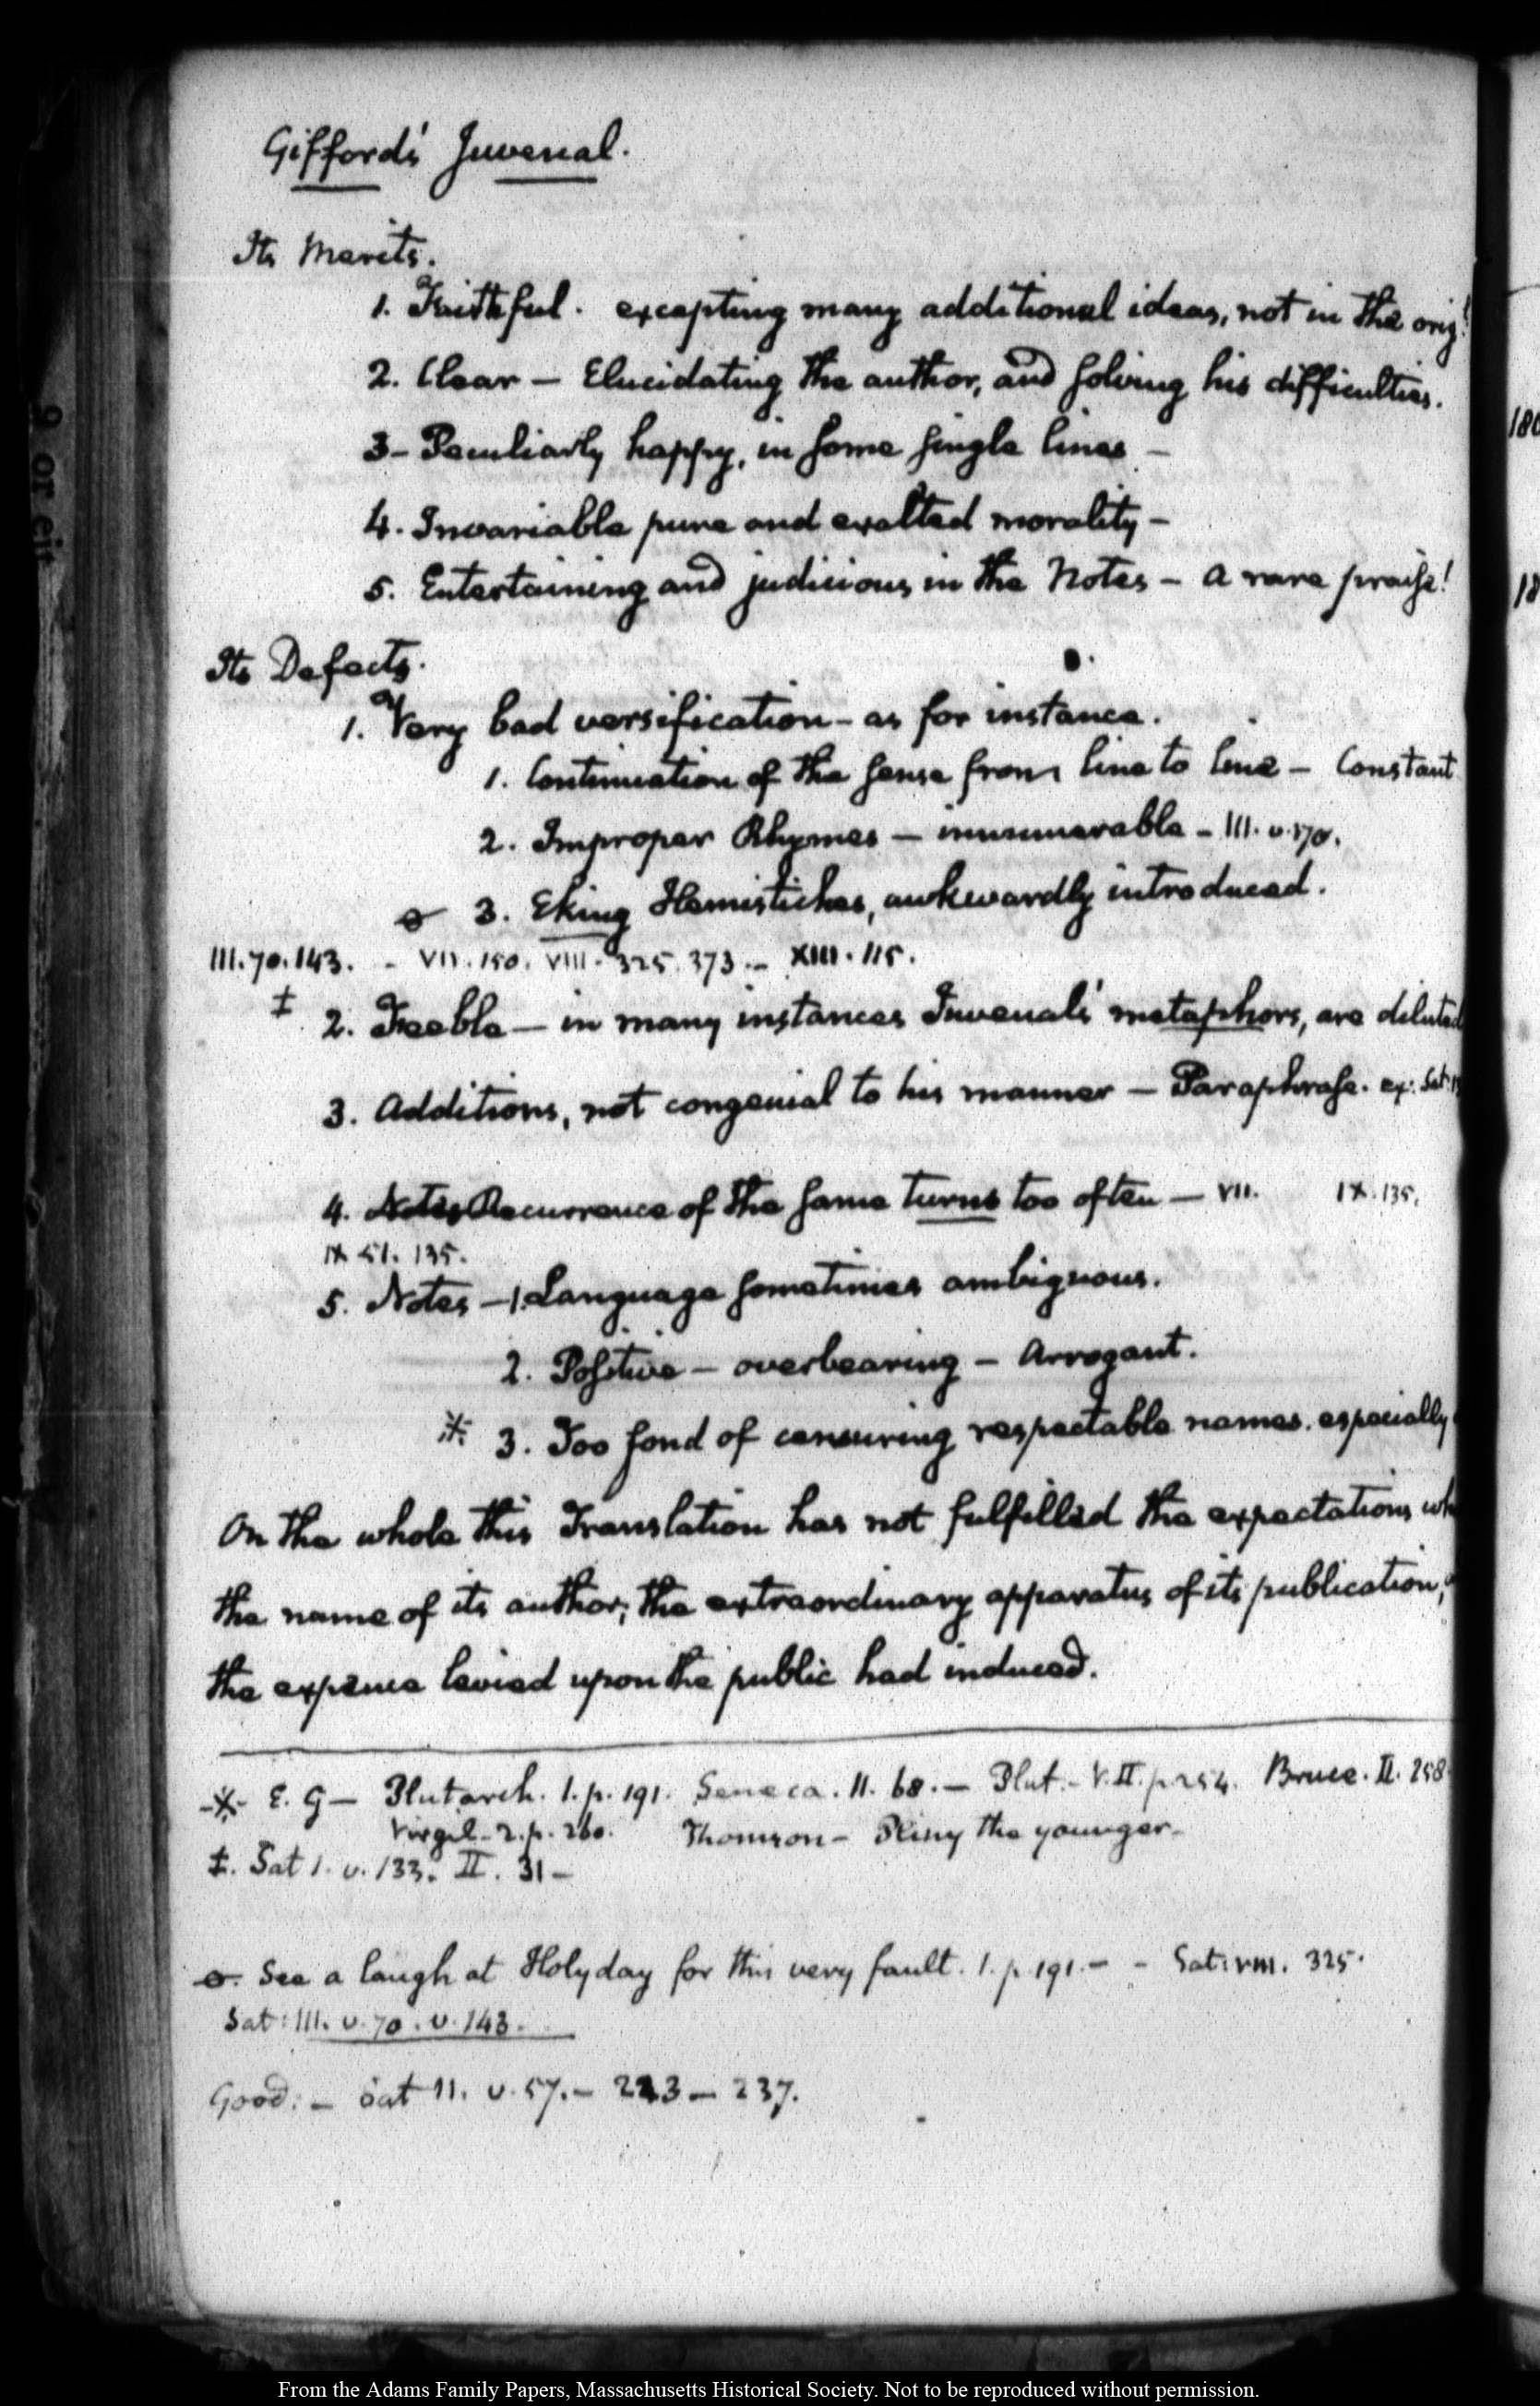 Gifford's Juvenal.
Its Merits.
1. Faithful. excepting many additional ideas, not in the orig!
2. Clear — Elucidating the author, and solving his difficulties.
3 - Peculiarly happy, in some single lines —
4. Invariable pure and exalted morality —
5. Entertaining and judicious in the Notes — a rare praise!
Its Defects.
1. Very bad versification — as for instance.
1. Continuation of the sense from line to line — Constant
2. Improper Rhymes — innumerable — III. v.170.
ꝋ 3. Eking Hemistiches, awkwardly introduced.
III.70.143. - VII.150. VIII. 325.373 — XIII.115.
‡ 2. Feeble — in many instances Juvenal's metaphors, are diluted
3. Additions, not congenial to his manner — Paraphrase. ex: Sat:
4. Notes Recurrence of the same turns too often — VII. IX.135.
IX 51. 135.
5. Notes — 1. Language sometimes ambiguous.
2. Positive — overbearing — Arrogant.
※ 3. Too fond of censuring respectable names. especially
On the whole this Translation has not fulfilled the expectations
the name of its author; the extraordinary apparatus of its publication,
the expence levied upon the public had induced.
※ E. G — Plutarch. 1.p.191. Seneca. 11. 68. — Plut. - V.II. p.254. Bruce. II. 258
Virgil - 2.p. 260. Thomson — Pliny the younger —
‡. Sat 1. v.133. II. 31 —
ꝋ. See a laugh at Holyday for this very fault. 1.p.191. — - Sat: VIII. 325.
Sat: III. v.70. v.143.
Good: — Sat 11. v.57. — 223 — 237.
9 or eit
180
18
From the Adams Family Papers, Massachusetts Historical Society. Not to be reproduced without permission.